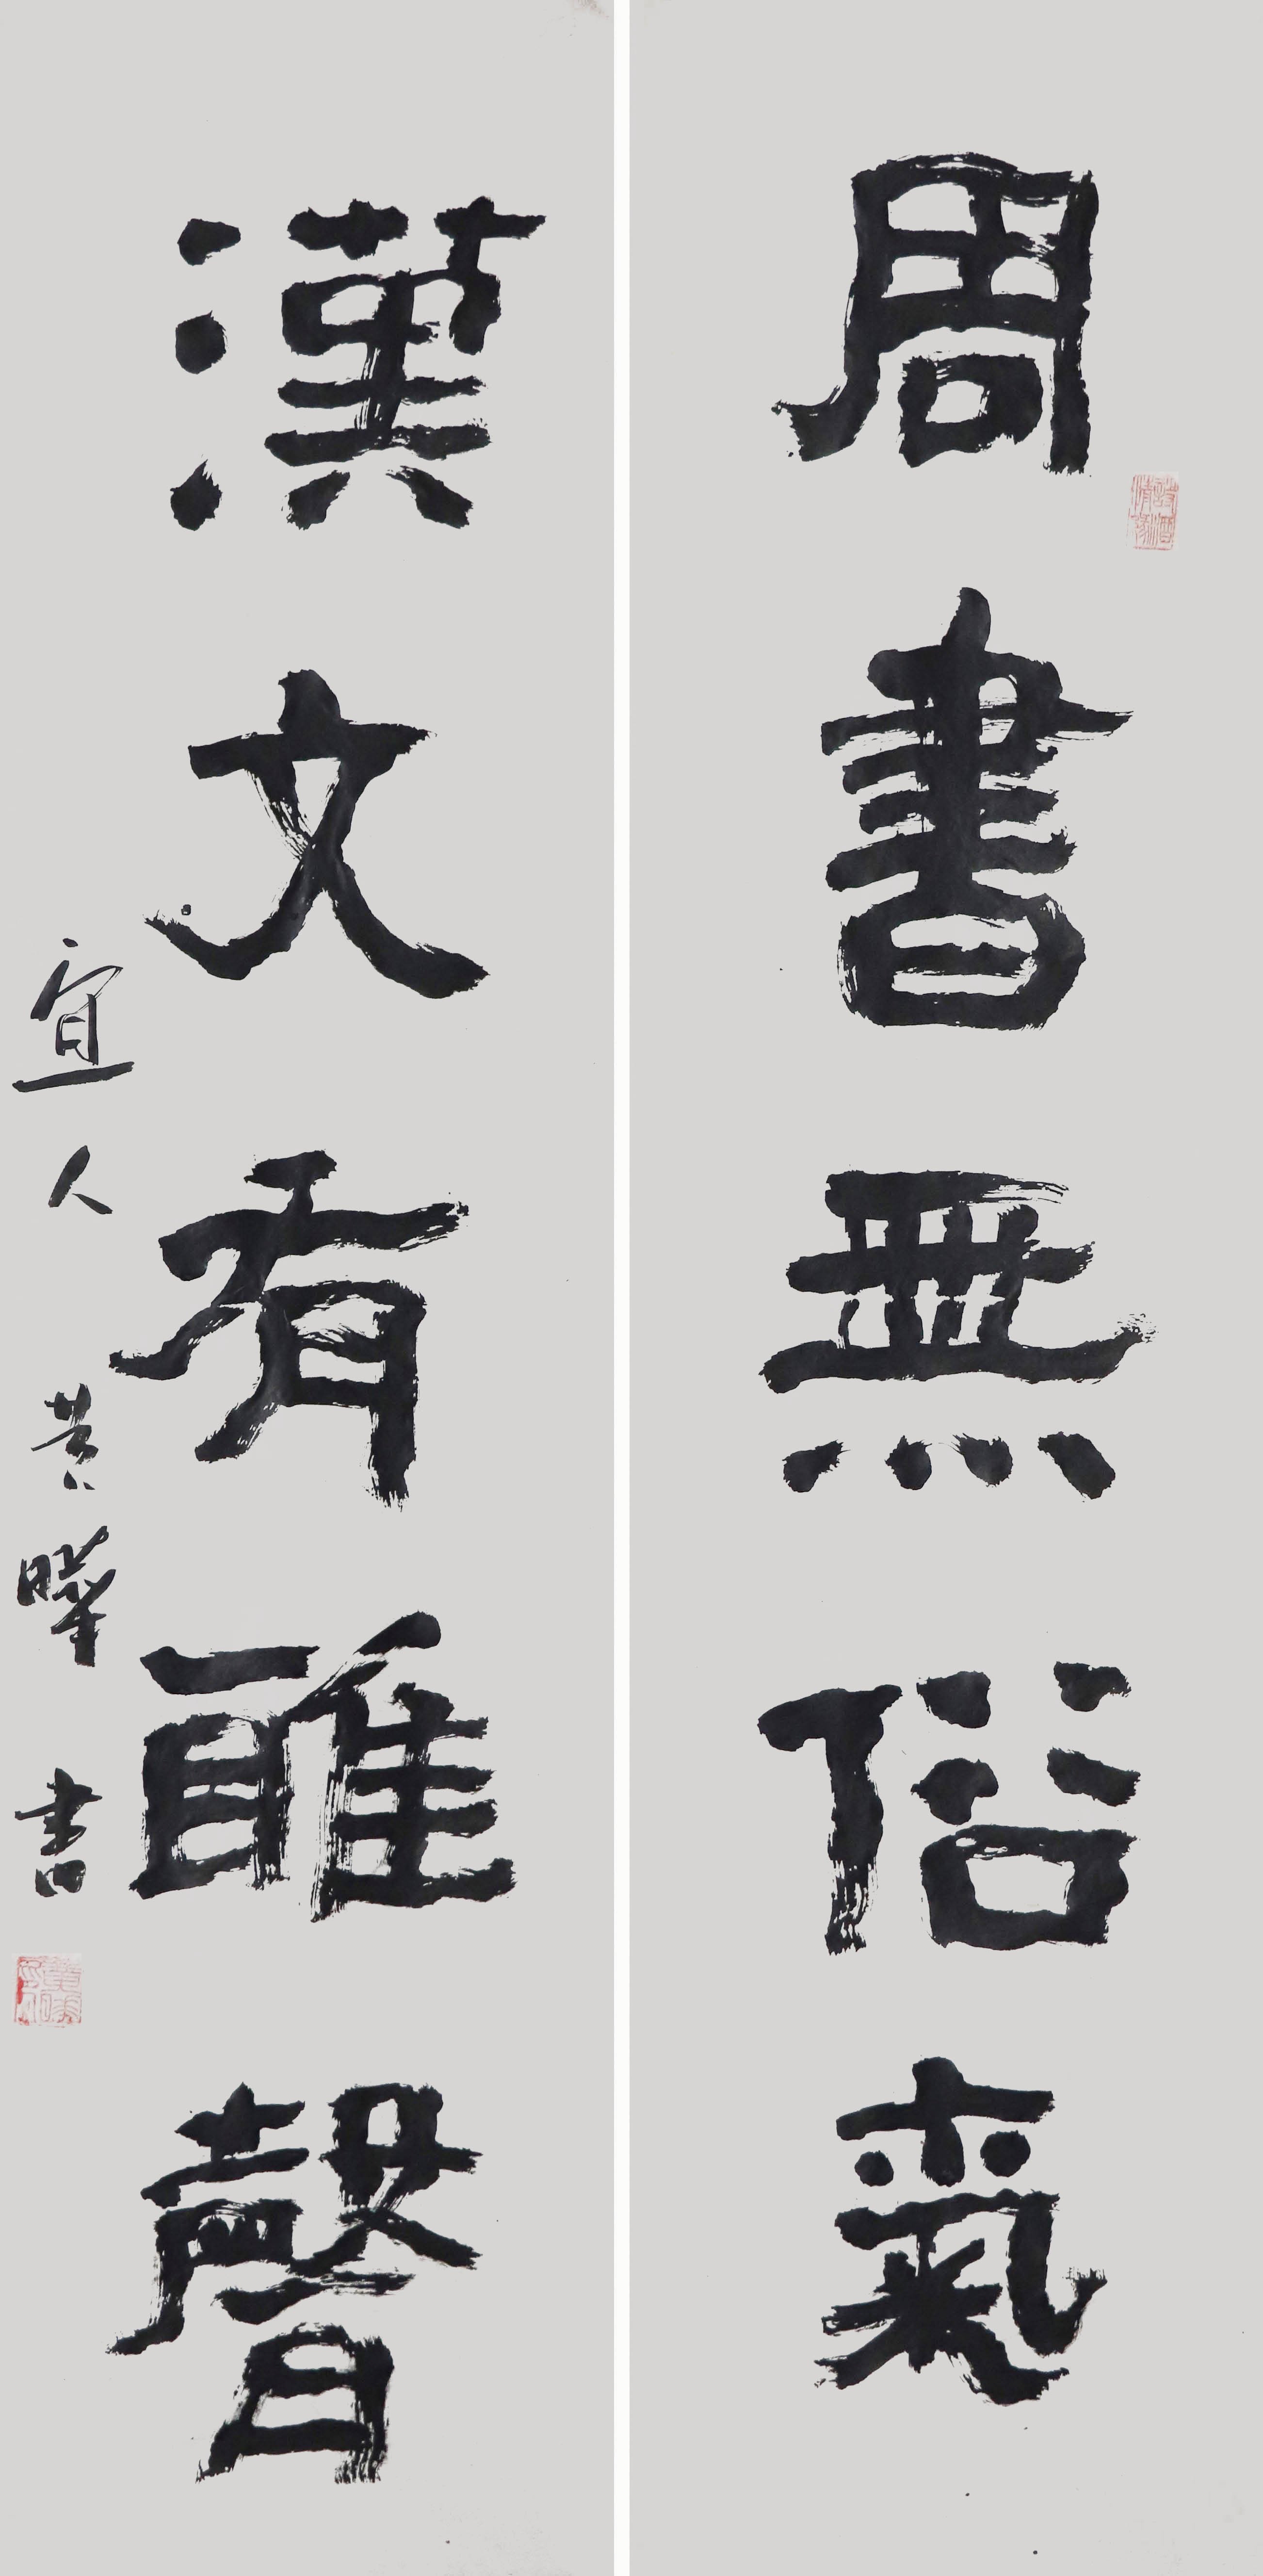 周書無俗氣
漢文有雅聲
宜人黄曄書